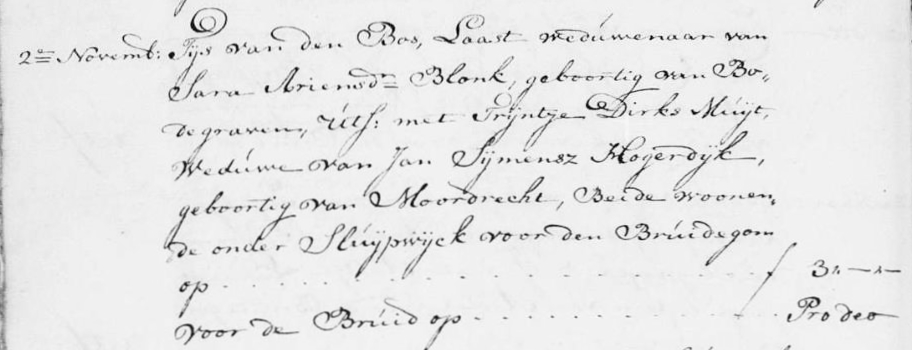 2en Novemb: Tijs van den Bos, Laast weduwenaar van
Sara Ariensdn Blonk, geboortig van Bo-
degraven, met Trijntje Dirks Muijt,
Weduwe van Jan Sijmensz Hogendijk,
geboortig van Moordrecht, Beide woonen-
de onder Sluijpwijck voor den Bruidegom
op . . . . . . . . . . . . . . . . ƒ 3"—"—
voor de Bruid op . . . . . . . . . . . . Pro deo